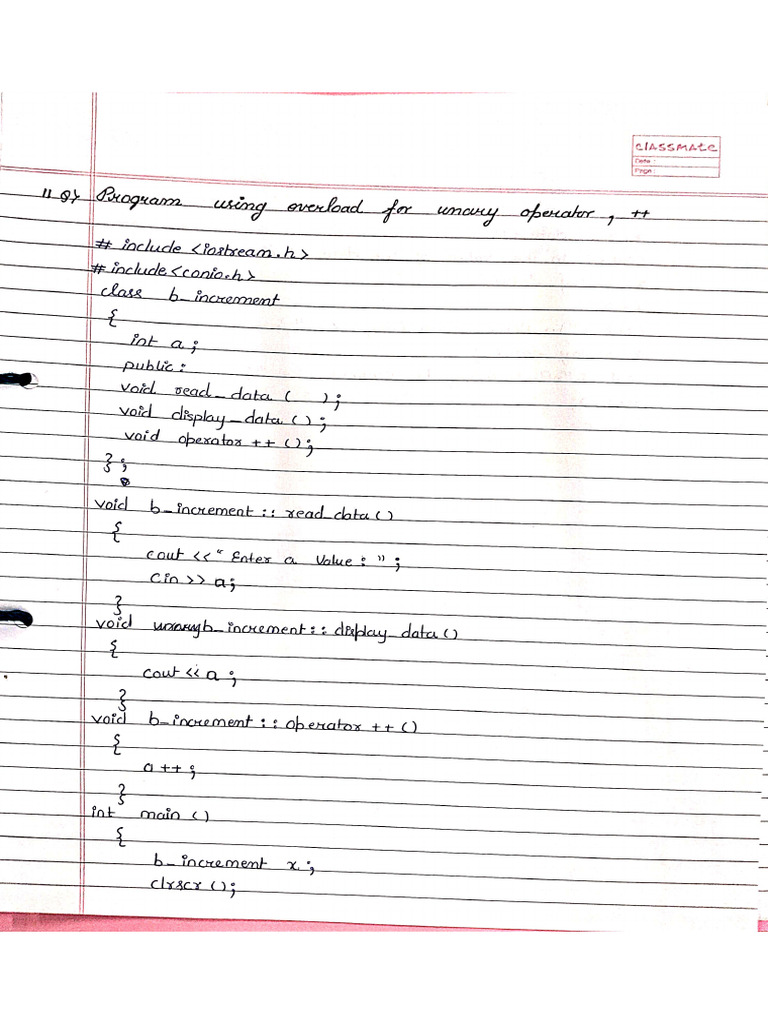 classmate
Date :
Page :
11 Q) Program using overload for unary operator, ++
# include <iostream.h>
# include <conio.h>
class b_increment
{
int a;
public:
void read_data ( );
void display_data ();
void operator ++ ();
};
void b_increment :: read_data ()
{
cout << " Enter a Value : " ;
Cin >> a;
}
void b_increment :: display_data ()
{
cout << a ;
}
void b_increment :: operator ++ ()
{
a ++ ;
}
int main ()
{
b_increment x ;
clrscr ();